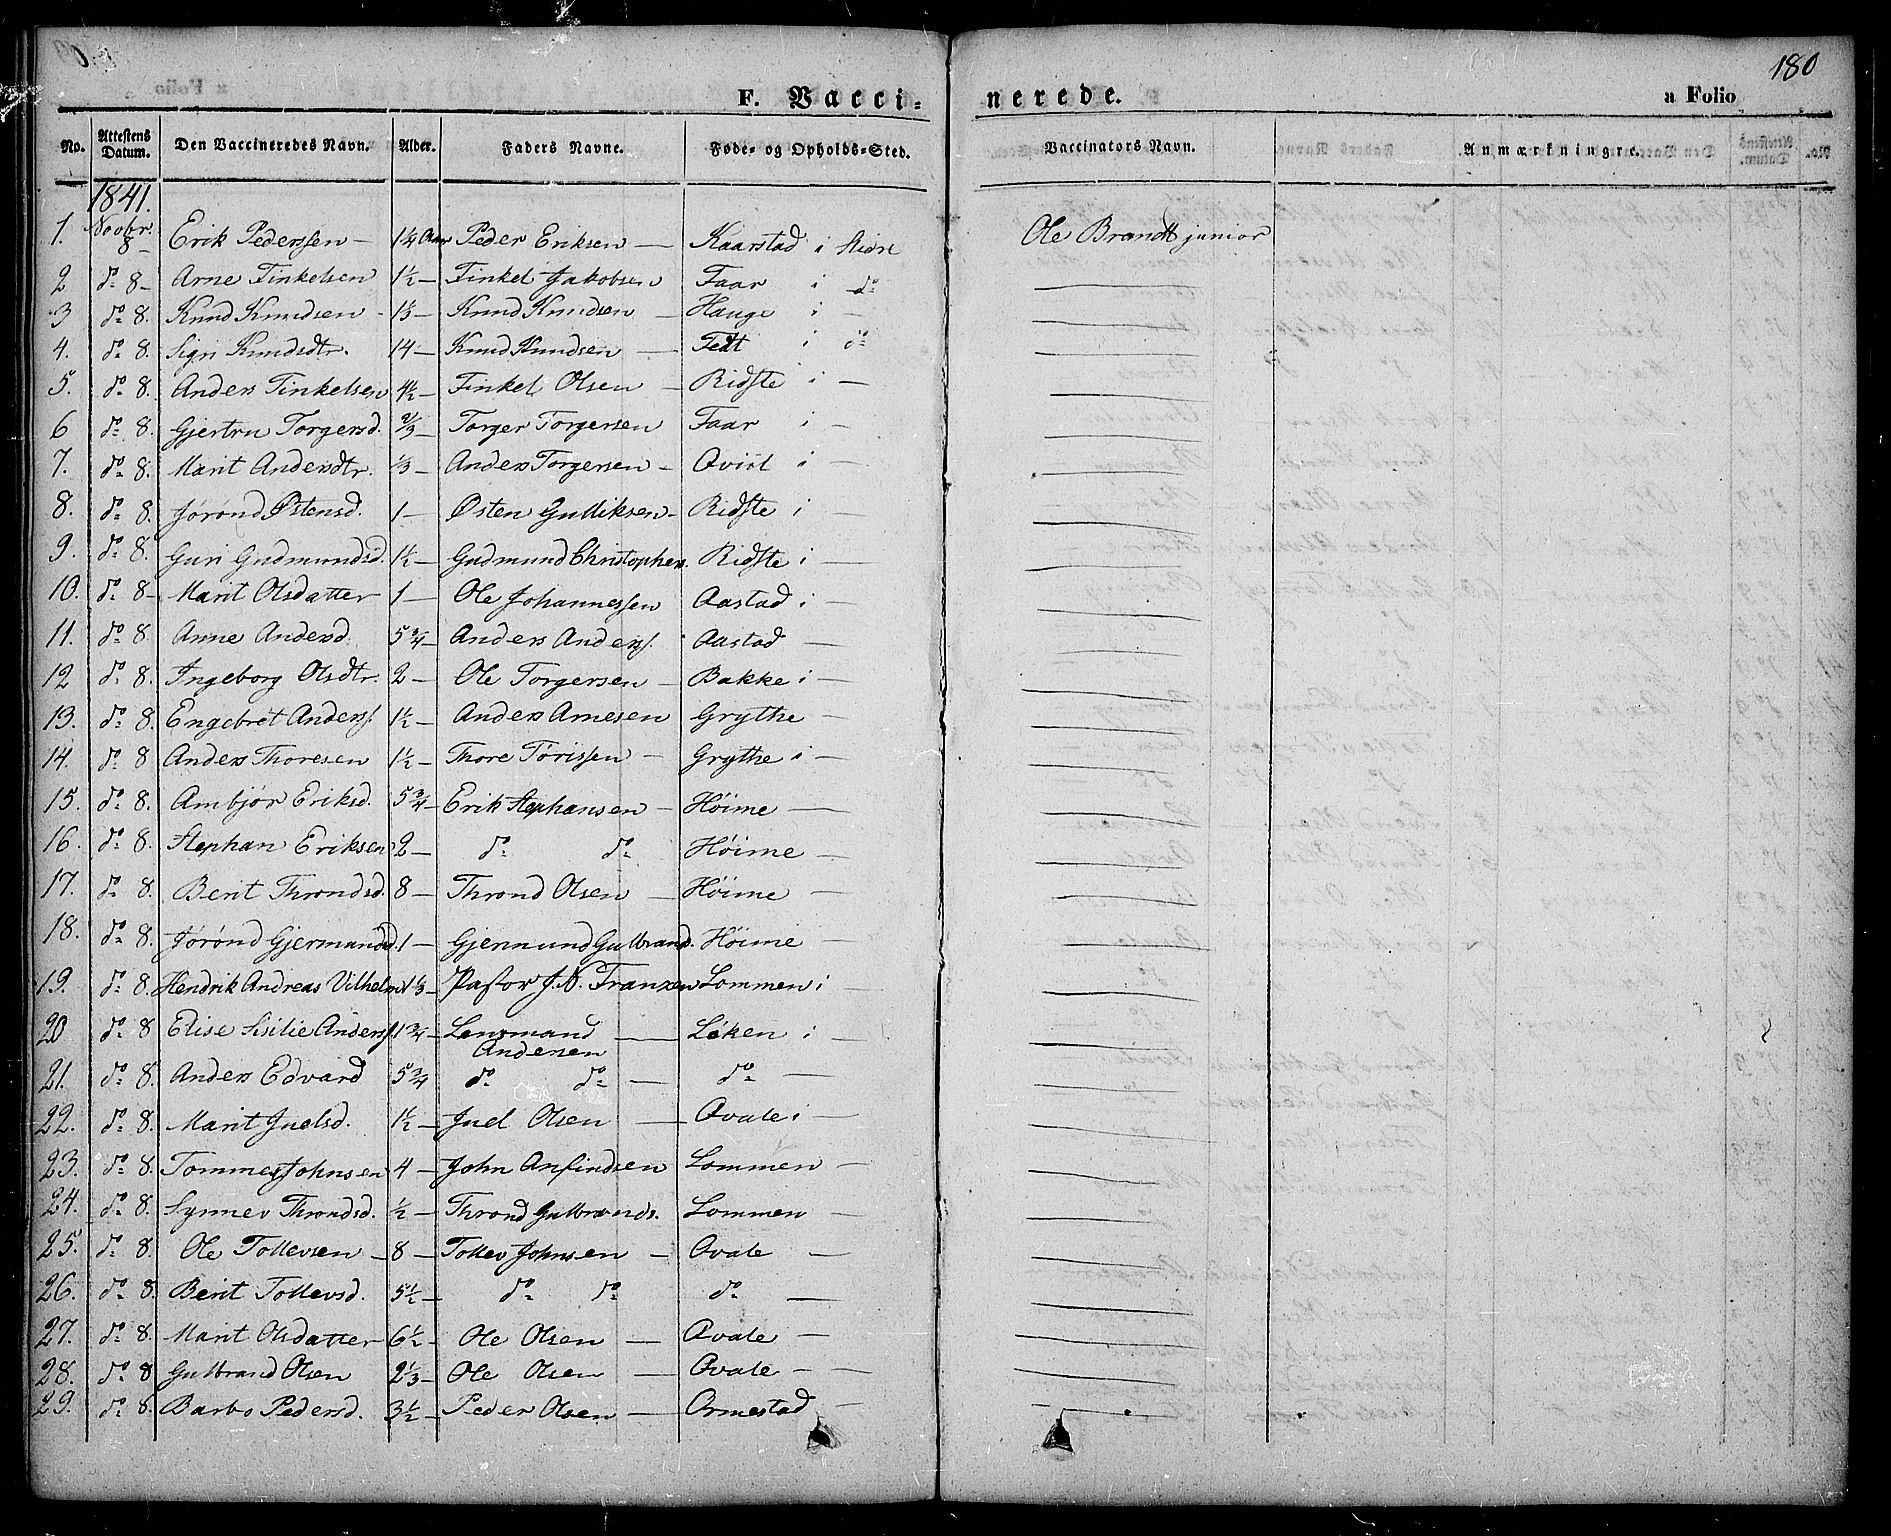 180
F. Vacci- nerede. a Folio
No. Attestens Datum. Den Vaccineredes Navn. Alder. Faders Navne. Føde- og Opholds-Sted. Vaccinators Navn. Anmærkningre.
1841.
1. Novbr. 8 – Erik Pederssen – 1¼ Aar Peder Eriksen — Kaarstad i Slidre Ole Brandt junior
2 do 8 – Arne Finkelsen 1½ – Finkel Jakobsen Faar i do
3 do 8. Knud Knudsen – 1⅓ – Knud Knudsen – Hauge i —
4. do 8. Sigri Knudsdtr. 14 – Knud Knudsen — Fedt i do
5. do 8. Anders Finkelsen 4½ – Finkel Olsen – Ridste i —
6 do 8. Gjertru Torgersd. ⅔ – Torger Torgersen Faar i —
7. do 8. Marit Andersdtr. ⅓ – Anders Torgersen – Qvist i —
8. do 8. Jørønd Østensd. 1 – Østen Gulliksen – Ridste i —
9. do 8. Guri Gudmundsd. 1½ – Gudmund Christophers. Ridste i —
10. do 8 – Marit Olsdatter 1 – Ole Johannessen Aastad i —
11. do 8 Anne Andersd. 5¾ – Anders Anderss. Aastad —
12 do 8. Ingeborg Olsdtr. 2 – Ole Torgersen – Bakke i —
13. do 8. Engebret Anderss. 1½ – Anders Arnesen Grythe —
14. do 8 Anders Thoresen 1½ – Thore Tørissen – Grythe i —
15. do 8. Ambjør Eriksd. 5¾ – Erik Stephansen – Høime —
16. do 8. Stephan Eriksen 2 – do do Høime —
17. do 8. Berit Throndsd. 8 – Thrond Olsen – Høime —
18. do 8. Jørønd Gjermundsd. 1 – Gjermund Gulbrands. Høime —
19. do 8. Hendrik Andreas Vilhelm 1⅓ – Pastor J. N. Franzen Lommen i —
20 do 8 Elise Sisilie Anderss. 1¾ – Lensmand — Løken i —
Andersen
21. do 8. Anders Edvard 5¾ do do — do —
22. do 8. Marit Juelsd. 1½ – Juel Olsen — Qvale i —
23. do 8. Tommes Johnsen 4 – John Anfindsen Lommen —
24. do 8. Synnev Throndsd. ½ – Thrond Gulbrands. Lommen —
25. do 8. Ole Tollevsen – 8 – Tollev Johnsen – Qvale —
26. do 8. Berit Tollevsd. 5½ – do do do —
27. do 8. Marit Olsdatter 6½ – Ole Olsen — Qvale —
28. do 8 Gulbrand Olsen 2⅓ – Ole Olsen — Qvale —
29. do 8. Barbo Pedersd. 3½ – Peder Olsen — Ormestad —